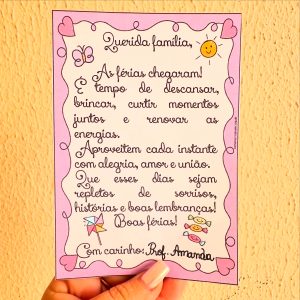 Querida família,
As férias chegaram!
É tempo de descansar,
brincar, curtir momentos
juntos e renovar as
energias.
Aproveitem cada instante
com alegria, amor e união.
Que esses dias sejam
repletos de sorrisos,
histórias e boas lembranças!
Boas férias!
Com carinho: Prof. Amanda